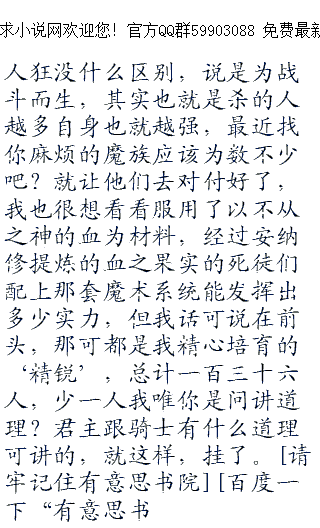 求小说网欢迎您！官方QQ群59903088 免费最新
人狂没什么区别，说是为战
斗而生，其实也就是杀的人
越多自身也就越强，最近找
你麻烦的魔族应该为数不少
吧？就让他们去对付好了，
我也很想看看服用了以不从
之神的血为材料，经过安纳
修提炼的血之果实的死徒们
配上那套魔术系统能发挥出
多少实力，但我话可说在前
头，那可都是我精心培育的
‘精锐’，总计一百三十六
人，少一人我唯你是问讲道
理？君主跟骑士有什么道理
可讲的，就这样，挂了。[请
牢记住有意思书院][百度一
下“有意思书